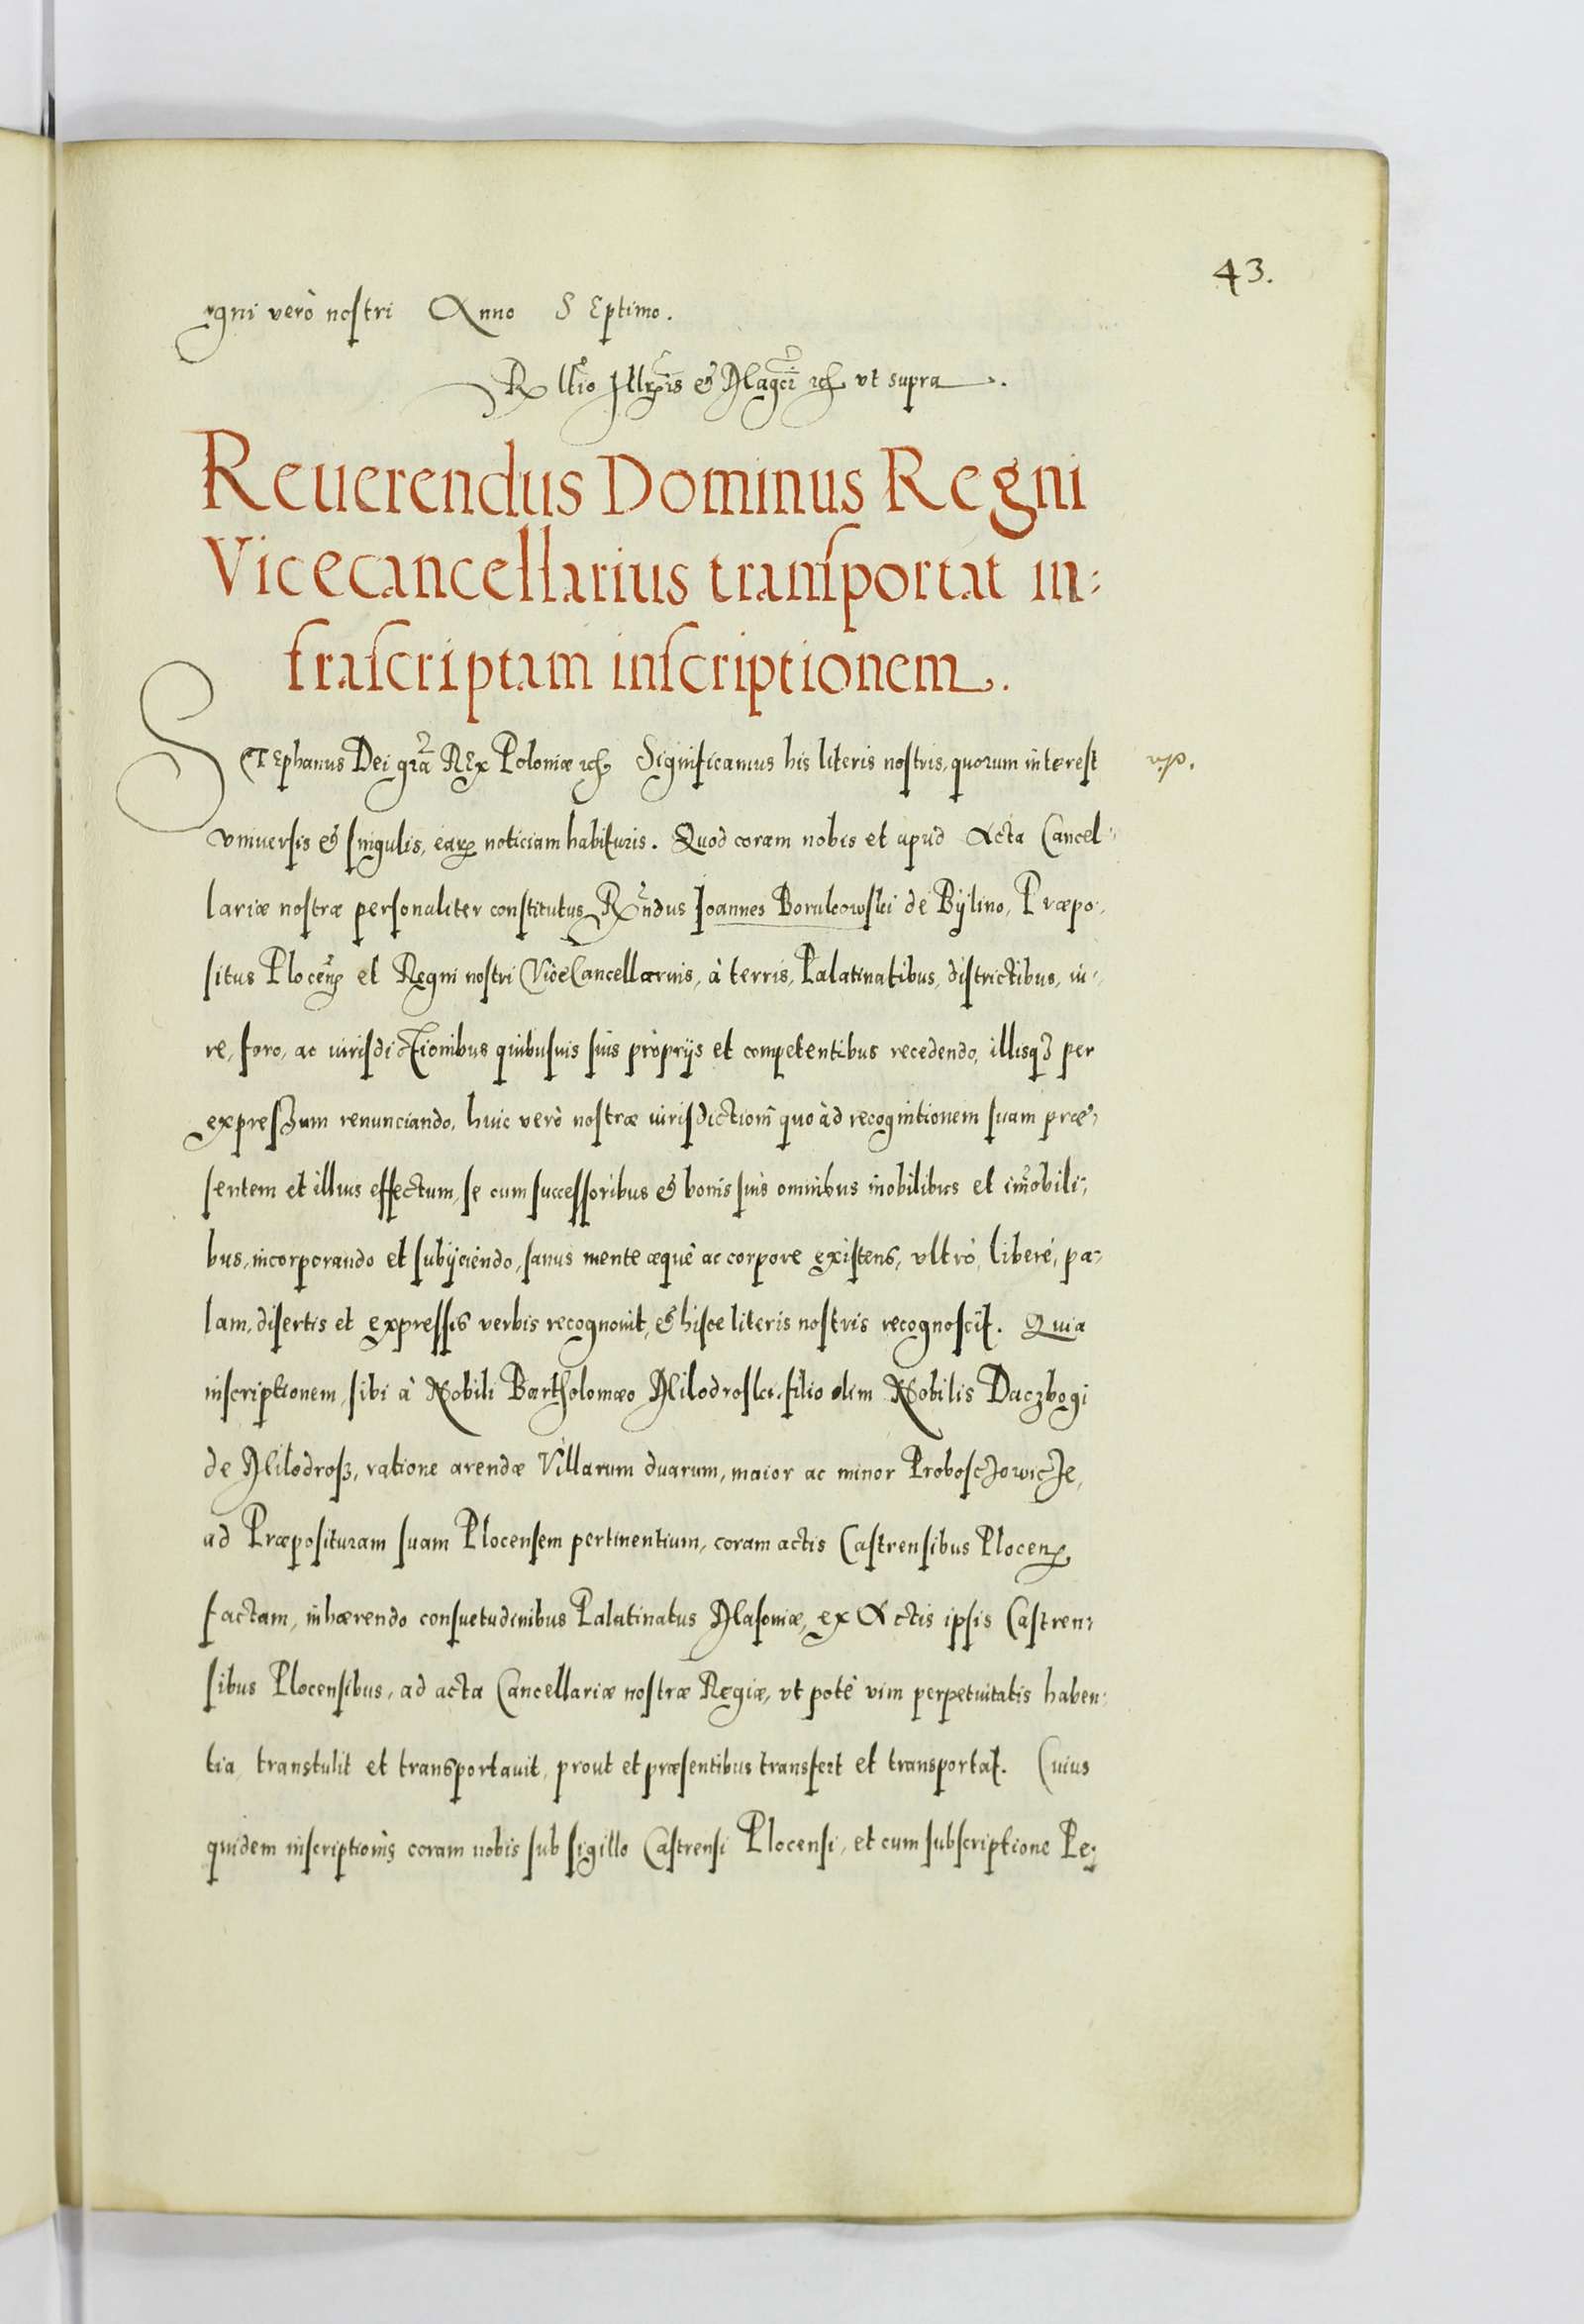 43.
gni verò nostri Anno SEptimo.
Rllĩo Illr̃is & Magc̃i etc̃ vt supra.
Reuerendus Dominus Regni
Vicecancellarius transportat in:
frascriptam inscriptionem.
STEphanus Dei gr̃a REx Poloniæ etc̃ Significamus his literis nostris, quorum interest
vniuersis & singulis, earꝝ noticiam habituris. Quod coram nobis et apud Acta Cancel:
lariæ nostræ personaliter constitutus Rñdus Ioannes Borukowski de Bÿlino, Præpo:
situs Plocen̄ et Regni nostri ViceCancellarius, à terris, Palatinatibus, districtibus, iu:
re, foro, ac iurisdictionibus quibusuis suis proprijs et competentibus recedendo, illisqꝫ per
expressum renunciando, huic verò nostræ iurisdictioni quo àd recognitionem suam præ:
sentem et illius effectum, se cum successoribus & bonis suis omnibus mobilibus et im̃obili:
bus, incorporando et subijciendo, sanus mente æquè ac corpore existens, vltrò, liberè, pa:
lam, disertis et expressis verbis recognouit, & hisce literis nostris recognoscit. Quia
inscriptionem, sibi à Nobili Bartholomæo Milodroski, filio olim Nobilis Daczbogi
de Milodrosz, ratione arendæ Villarum duarum, maior ac minor Proboszczowicze,
ad Præposituram suam Plocensem pertinentium, coram actis Castrensibus Plocen̄
factam, inhærendo consuetudinibus Palatinatus Masoniæ, ex Actis ipsis Castren:
sibus Plocensibus, ad acta Cancellariæ nostræ Regiæ, vt potè vim perpetuitatis haben:
tia, transtulit et transportauit, prout et præsentibus transfert et transportat. Cuius
quidem inscriptionis coram nobis sub sigillo Castrensi Plocensi, et cum subscriptione Pe: